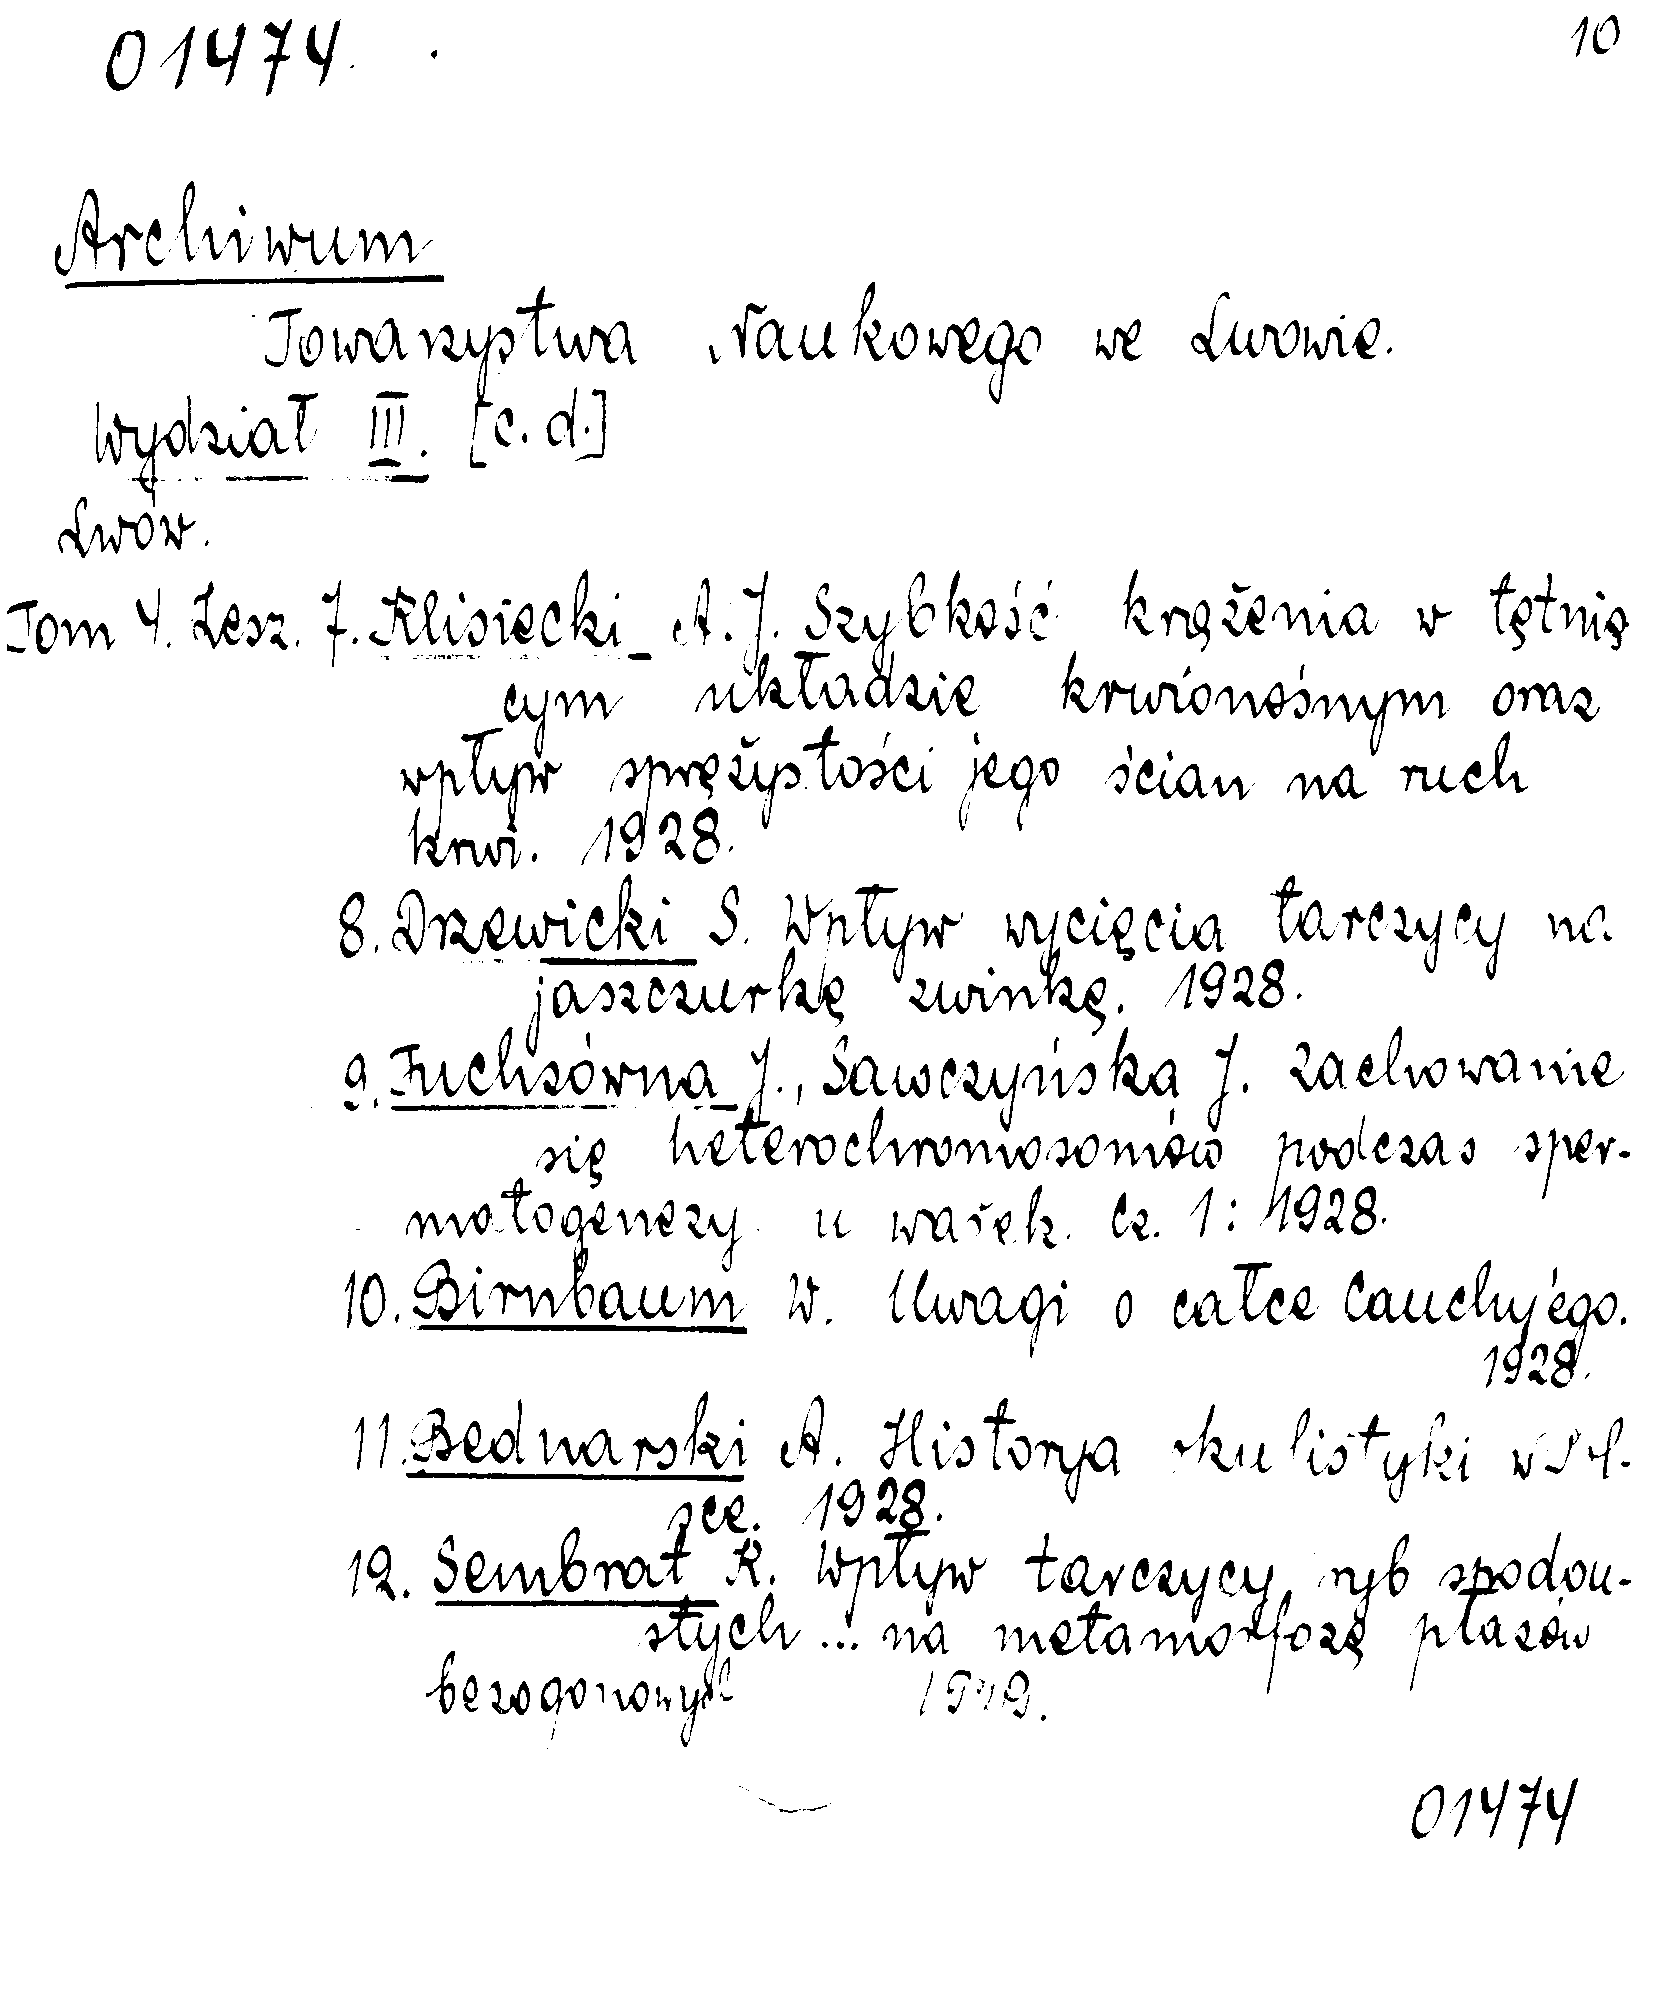 01474. 10
Archiwum
Towarzystwa Naukowego we Lwowie.
Wydział III. [c. d.]
Lwów.
Tom 4. Zesz. 7. Klisiecki A. J. Szybkość krążenia w tętnią
cym układzie krwionośnym oraz
wpływ sprężystości jego ścian na ruch
krwi. 1928.
8. Drzewicki S. Wpływ wycięcia tarczycy na
jaszczurkę zwinkę. 1928.
9. Fuchsówna J., Sawczyńska J. Zachowanie
się heterochromosomów podczas sper-
matogenezy u ważek. Cz. 1: 1928.
10. Birnbaum W. Uwagi o całce Cauchy'ego.
1928.
11. Bednarski A. Historya okulistyki w Pol-
sce. 1928.
12. Sembrat K. Wpływ tarczycy ryb spodou-
stych ... na metamorfozę płazów
bezogonowych
01474